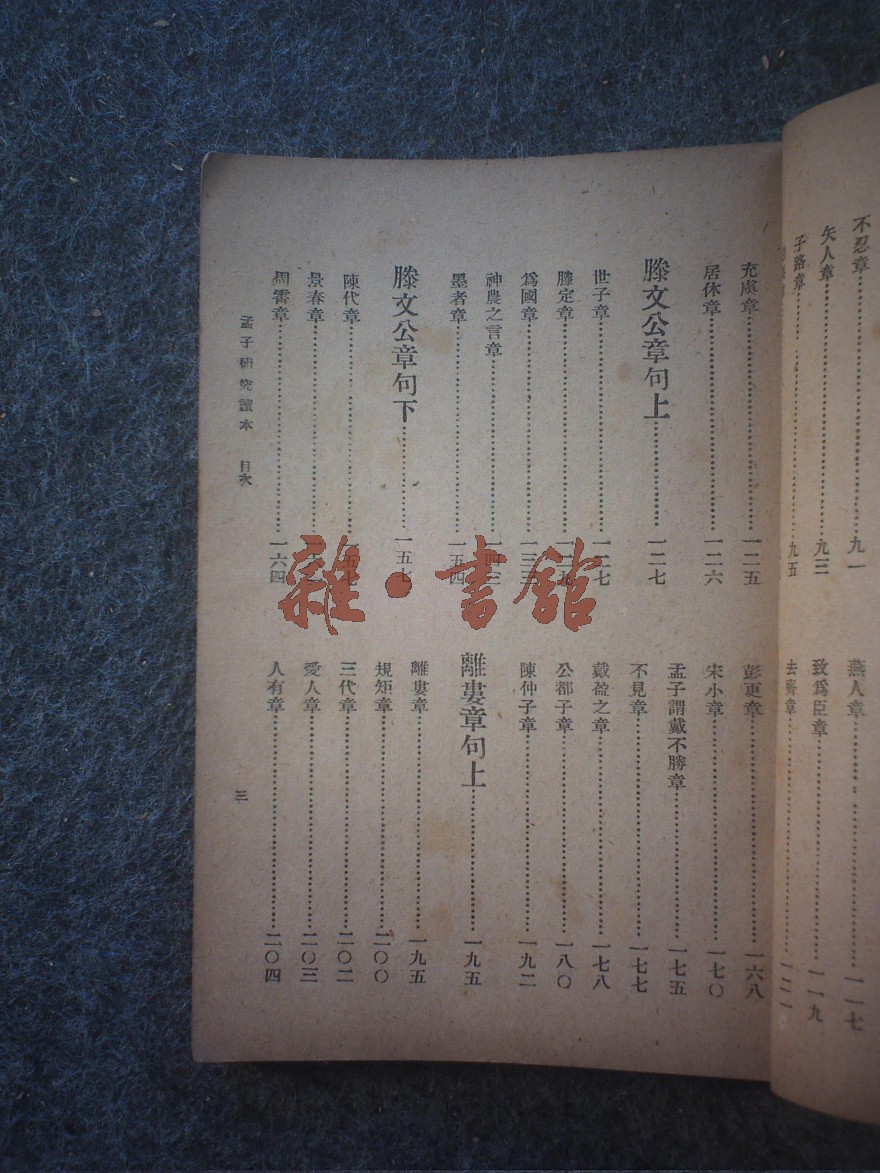 不忍章……九一
矢人章……九三
子路章……九五
燕人章……一一七
致爲臣章……一一九
去齊章……一二一
充虞章……一二五
居休章……一二六
滕文公章句上……一二七
世子章……一二七
滕定章……一二九
爲國章……一三三
神農之言章……一四三
墨者章……一五四
滕文公章句下……一五七
陳代章……一五七
景春章……一六
周霄章……一六四
彭更章……一六八
宋小章……一七〇
孟子謂戴不勝章……一七五
不見章……一七七
戴盈之章……一七八
公都子章……一八〇
陳仲子章……一九二
離婁章句上……一九五
離婁章……一九五
規矩章……二〇〇
三代章……二〇二
愛人章……二〇三
人有章……二〇四
孟子研究讀本 目次
三
雜·書館